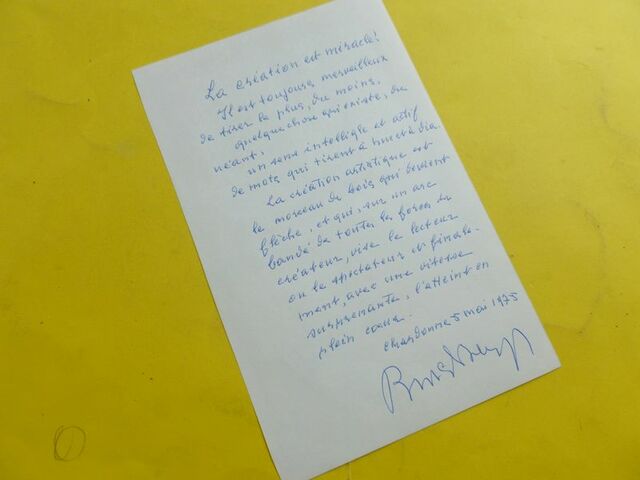 La création est miracle!
Il est toujours merveilleux
de tirer le plus, du moins,
quelque chose qui existe, du
néant,
un sens intelligible et actif
de mots qui tirent à hue et à dia.
La création artistique est
le morceau de bois qui devient
flèche, et qui, sur un arc
bandé de toutes les forces du
créateur, vise le lecteur
ou le spectateur et finale-
ment, avec une vitesse
surprenante, l'atteint en
plein cœur.
Chardonne 5 mai 1975